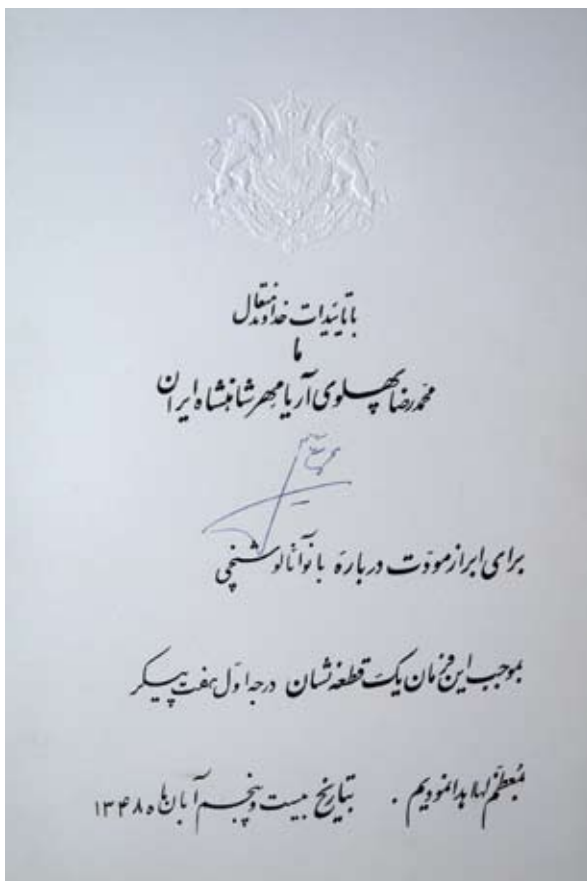 با تائیدات خداوند متعال
ما
محمد رضا پهلوی آریا مهر شاهنشاه ایران
برای ابراز مودّت دربارهٔ بانو آنا لوشنچی
بموجب این فرمان یک قطعه نشان درجه اوّل هفت پیکر
معظّم لها اهدا نمودیم . بتاریخ بیست و پنجم آبان ماه ۱۳۴۸